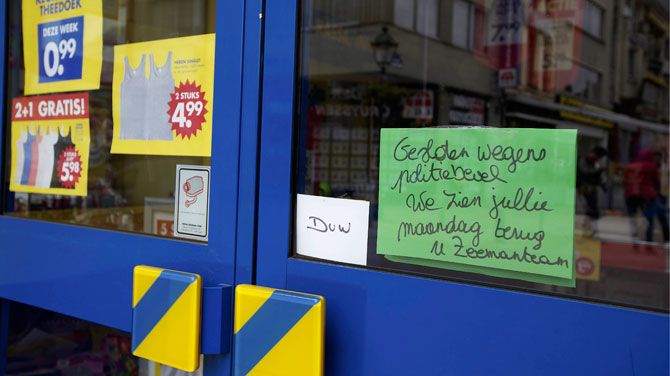 THEEDOEK
DEZE WEEK
0.99
2 STUKS
4.99
2+1 GRATIS!
5.98
Duw
Gesloten wegens
politiebevel
We zien jullie
maandag terug
u Zeemanteam